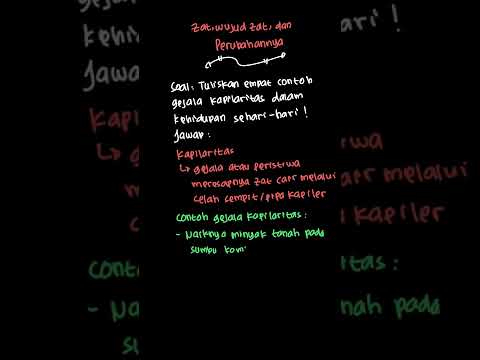 Zat, wujud zat, dan
Perubahannya
Soal: Tuliskan empat contoh
gejala kapilaritas dalam
kehidupan sehari-hari!
Jawab:
Kapilaritas
↳ gejala atau peristiwa
meresapnya zat cair melalui
celah sempit/pipa kapiler
Contoh gejala kapilaritas:
- Naiknya minyak tanah pada
sumbu kom